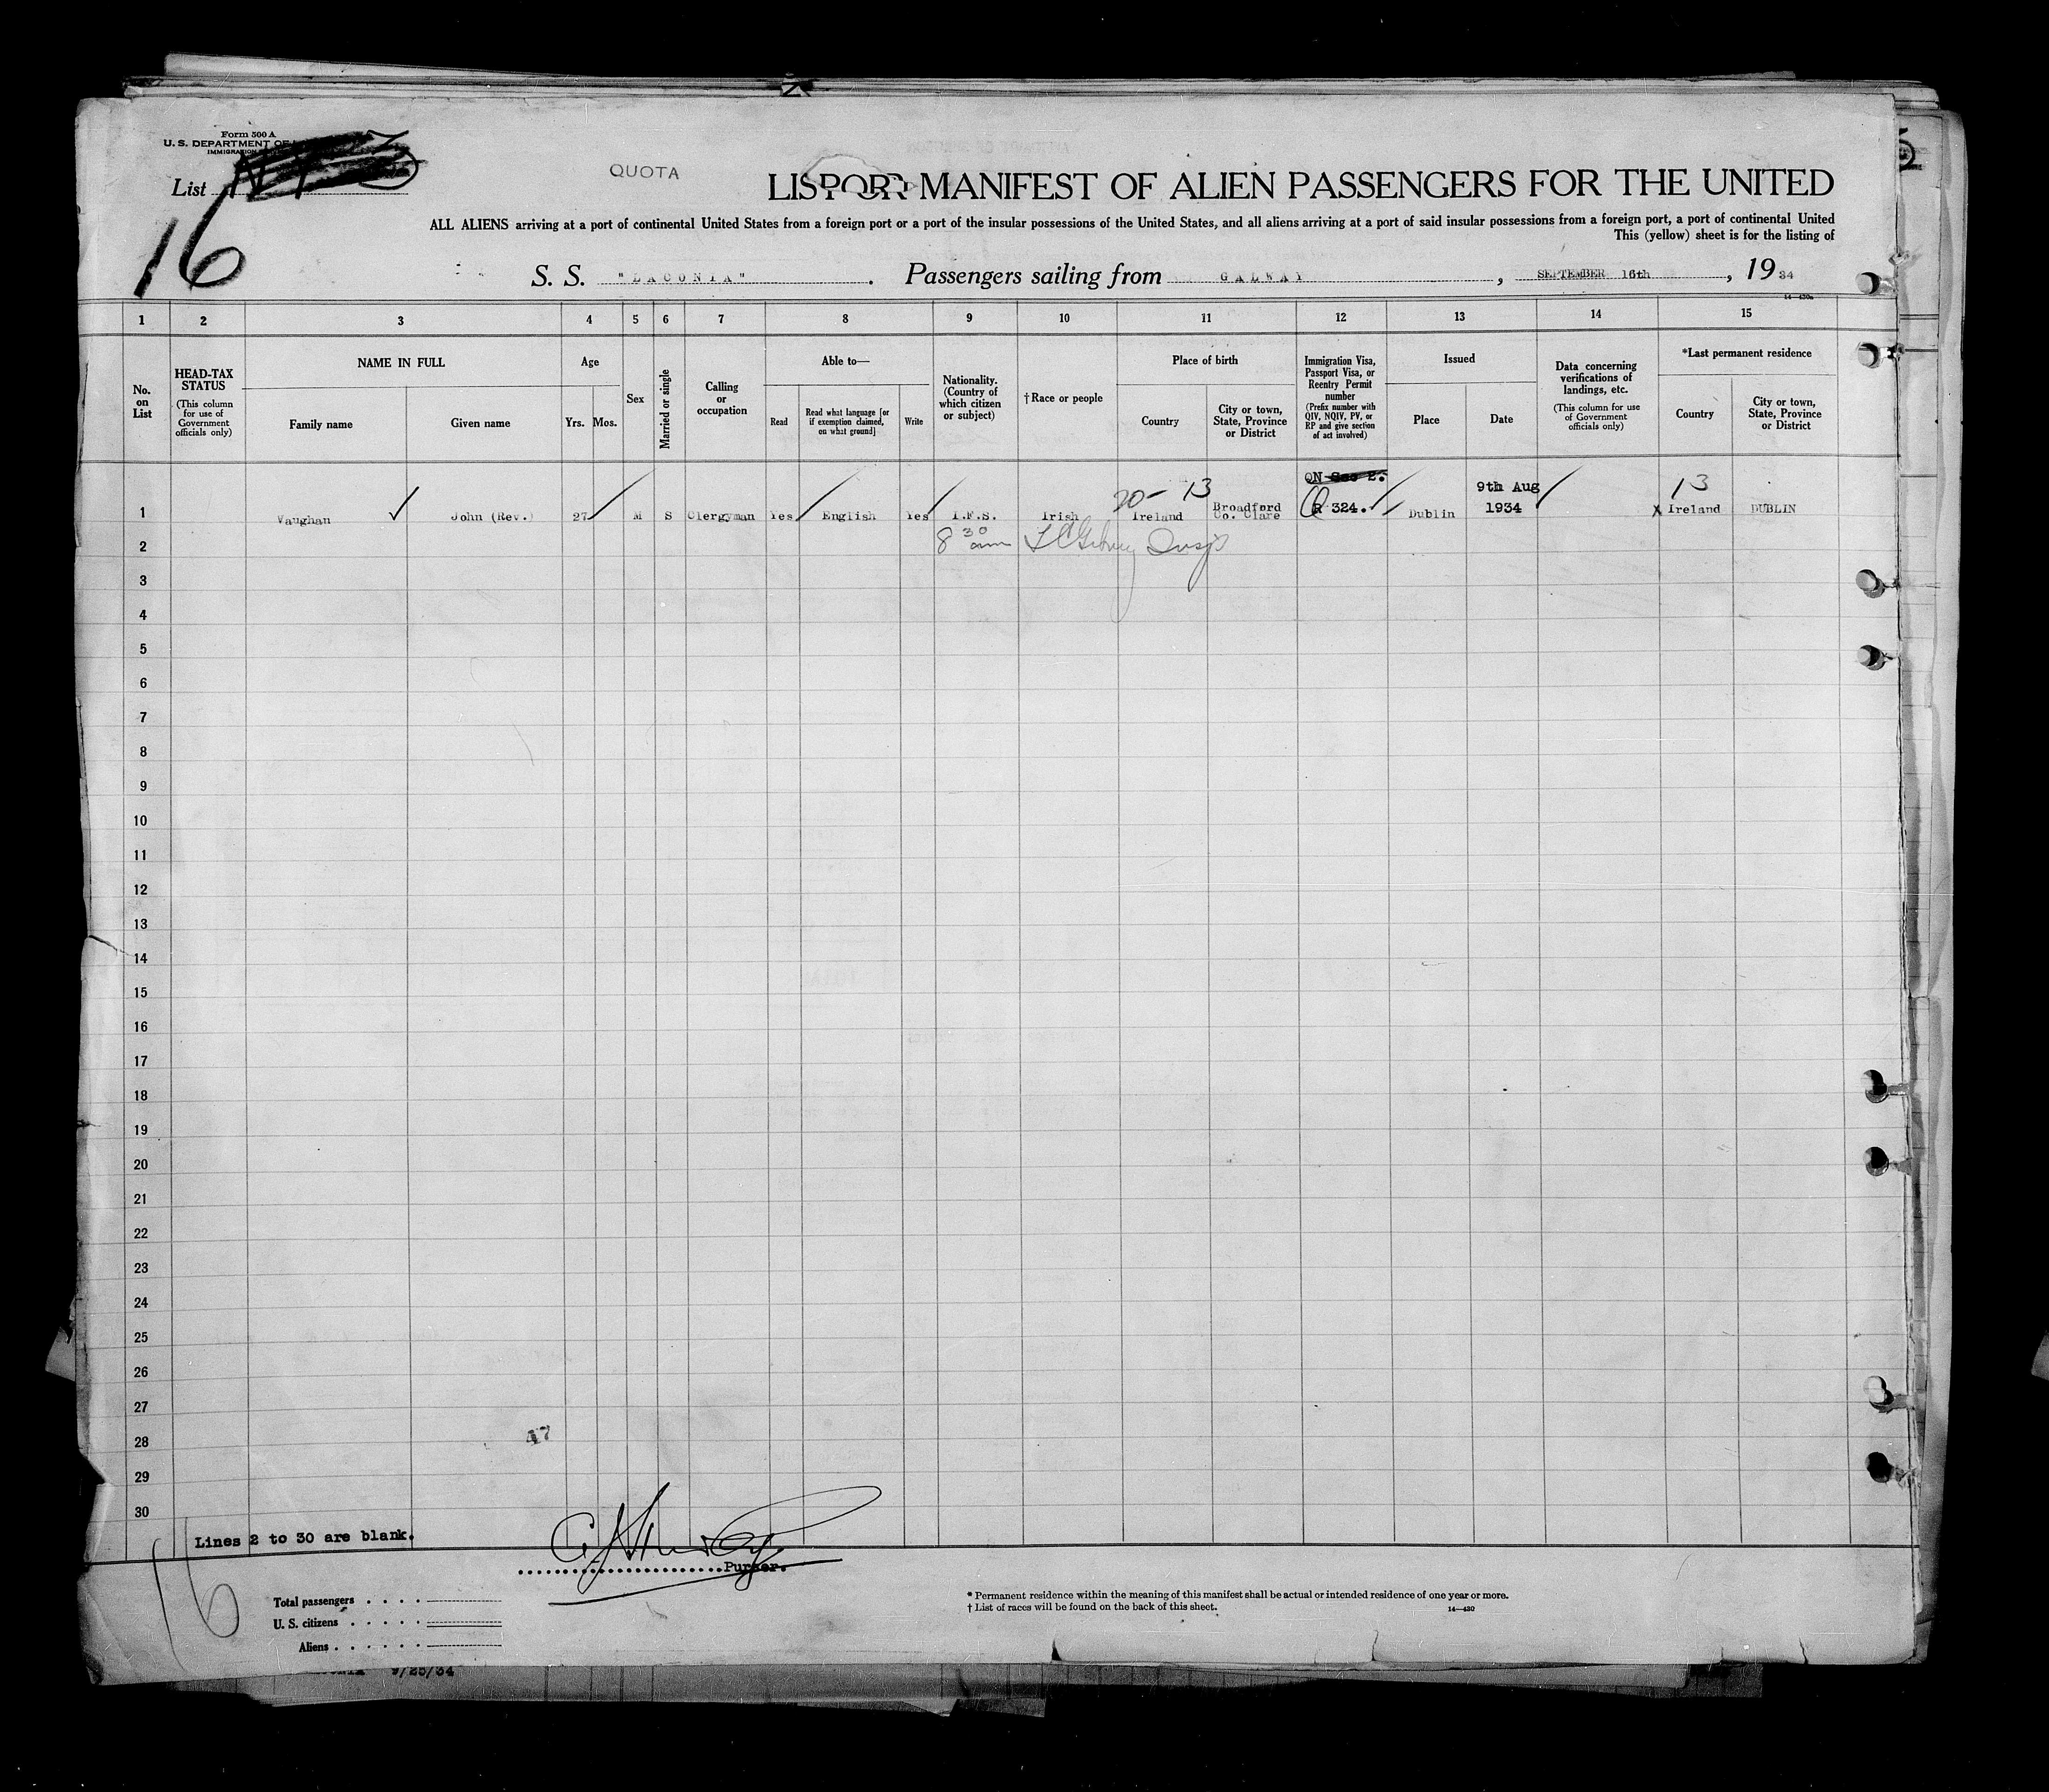 Form 500 A
U. S. DEPARTMENT OF
IMMIGRATION
List
16
QUOTA
LIS OR MANIFEST OF ALIEN PASSENGERS FOR THE UNITED
ALL ALIENS arriving at a port of continental United States from a foreign port or a port of the insular possessions of the United States, and all aliens arriving at a port of said insular possessions from a foreign port, a port of continental United
This (yellow) sheet is for the listing of
S. S. "LACONIA". Passengers sailing from GALWAY, SEPTEMBER 16th, 1934
14—430a
1 2 3 4 5 6 7 8 9 10 11 12 13 14 15
No. on List
HEAD-TAX STATUS
(This column for use of Government officials only)
NAME IN FULL
Family name
Given name
Age
Yrs.
Mos.
Sex
Married or single
Calling or occupation
Able to—
Read
Read what language [or if exemption claimed, on what ground]
Write
Nationality. (Country of which citizen or subject)
†Race or people
Place of birth
Country
City or town, State, Province or District
Immigration Visa, Passport Visa, or Reentry Permit number
(Prefix number with QIV, NQIV, PV, or RP and give section of act involved)
Issued
Place
Date
Data concerning verifications of landings, etc.
(This column for use of Government officials only)
*Last permanent residence
Country
City or town, State, Province or District
1 Vaughan John (Rev.) 27 M S Clergyman Yes English Yes I.F.S. Irish 20-13 Ireland Broadford Co. Clare QN Sec 2. Q 324. Dublin 9th Aug 1934 13 X Ireland DUBLIN
2 8 30 am Insp
3
4
5
6
7
8
9
10
11
12
13
14
15
16
17
18
19
20
21
22
23
24
25
26
27
28
47
29
30
Lines 2 to 30 are blank.
Purser.
16
Total passengers
U. S. citizens
Aliens
* Permanent residence within the meaning of this manifest shall be actual or intended residence of one year or more.
† List of races will be found on the back of this sheet.
14—430
9/25/34